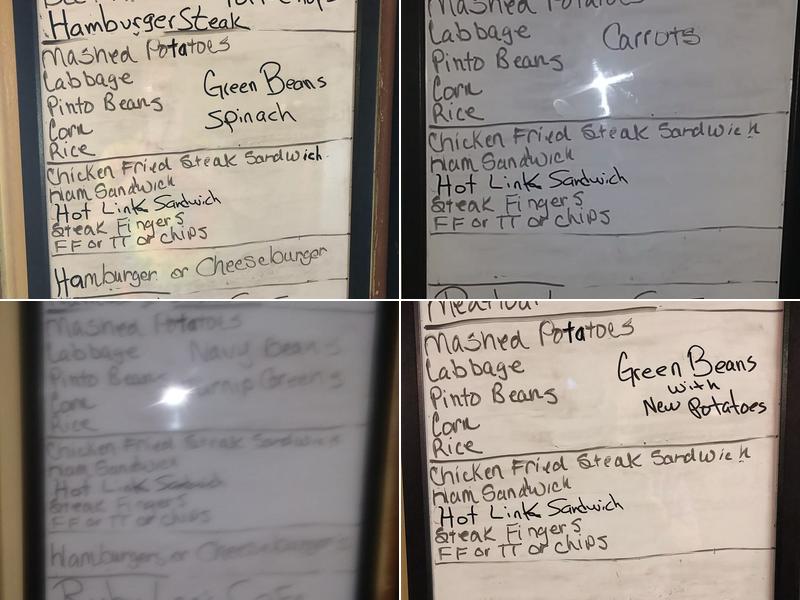 Hamburger Steak
Mashed Potatoes
Cabbage
Pinto Beans
Corn
Rice
Green Beans
Spinach
Chicken Fried Steak Sandwich
Ham Sandwich
Hot Link Sandwich
Steak Fingers
FF or TT or chips
Hamburger or Cheeseburger
Mashed Potatoes
Cabbage
Pinto Beans
Corn
Rice
Carrots
Chicken Fried Steak Sandwich
Ham Sandwich
Hot Link Sandwich
Steak Fingers
FF or TT or chips
Mashed Potatoes
Cabbage
Pinto Beans
Corn
Rice
Navy Beans
Turnip Greens
Chicken Fried Steak Sandwich
Ham Sandwich
Hot Link Sandwich
Steak Fingers
FF or TT or chips
Hamburgers or Cheeseburger's
Meatloaf
Mashed Potatoes
Cabbage
Pinto Beans
Corn
Rice
Green Beans
with
New Potatoes
Chicken Fried Steak Sandwich
Ham Sandwich
Hot Link Sandwich
Steak Fingers
FF or TT or chips